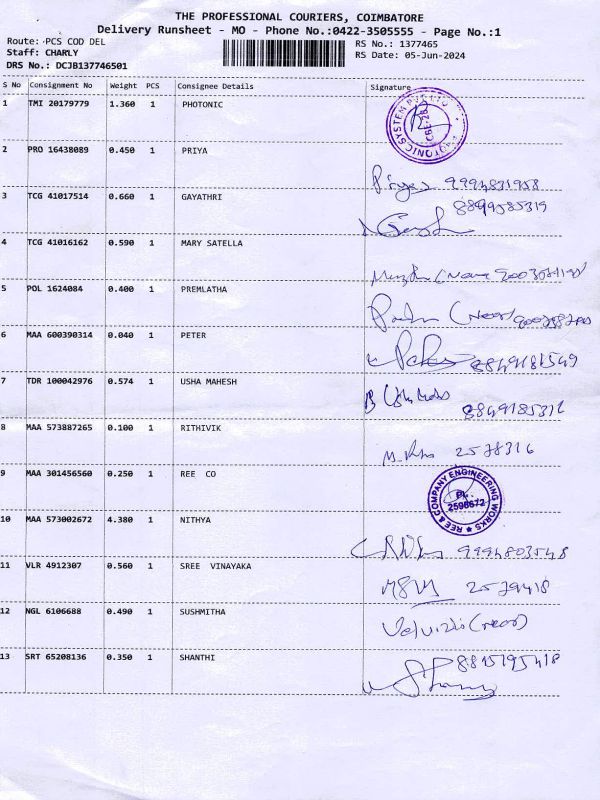 THE PROFESSIONAL COURIERS, COIMBATORE
Delivery Runsheet - MO - Phone No.:0422-3505555 - Page No.:1
Route: PCS COD DEL RS No.: 1377465
Staff: CHARLY RS Date: 05-Jun-2024
DRS No.: DCJB137746501
S No Consignment No Weight PCS Consignee Details Signature
1 TMI 20179779 1.360 1 PHOTONIC
2 PRO 16438089 0.450 1 PRIYA
Priya 9994831958
3 TCG 41017514 0.660 1 GAYATHRI 8899585319
4 TCG 41016162 0.590 1 MARY SATELLA
5 POL 1624084 0.400 1 PREMLATHA
6 MAA 600390314 0.040 1 PETER
8849181549
7 TDR 100042976 0.574 1 USHA MAHESH
8849185316
8 MAA 573887265 0.100 1 RITHIVIK
2578316
9 MAA 301456560 0.250 1 REE CO
REE & COMPANY ENGINEERING WORKS
PH. 2598672
10 MAA 573002672 4.380 1 NITHYA
9994803548
11 VLR 4912307 0.560 1 SREE VINAYAKA
2579418
12 NGL 6106688 0.490 1 SUSHMITHA
13 SRT 65208136 0.350 1 SHANTHI 8815195418